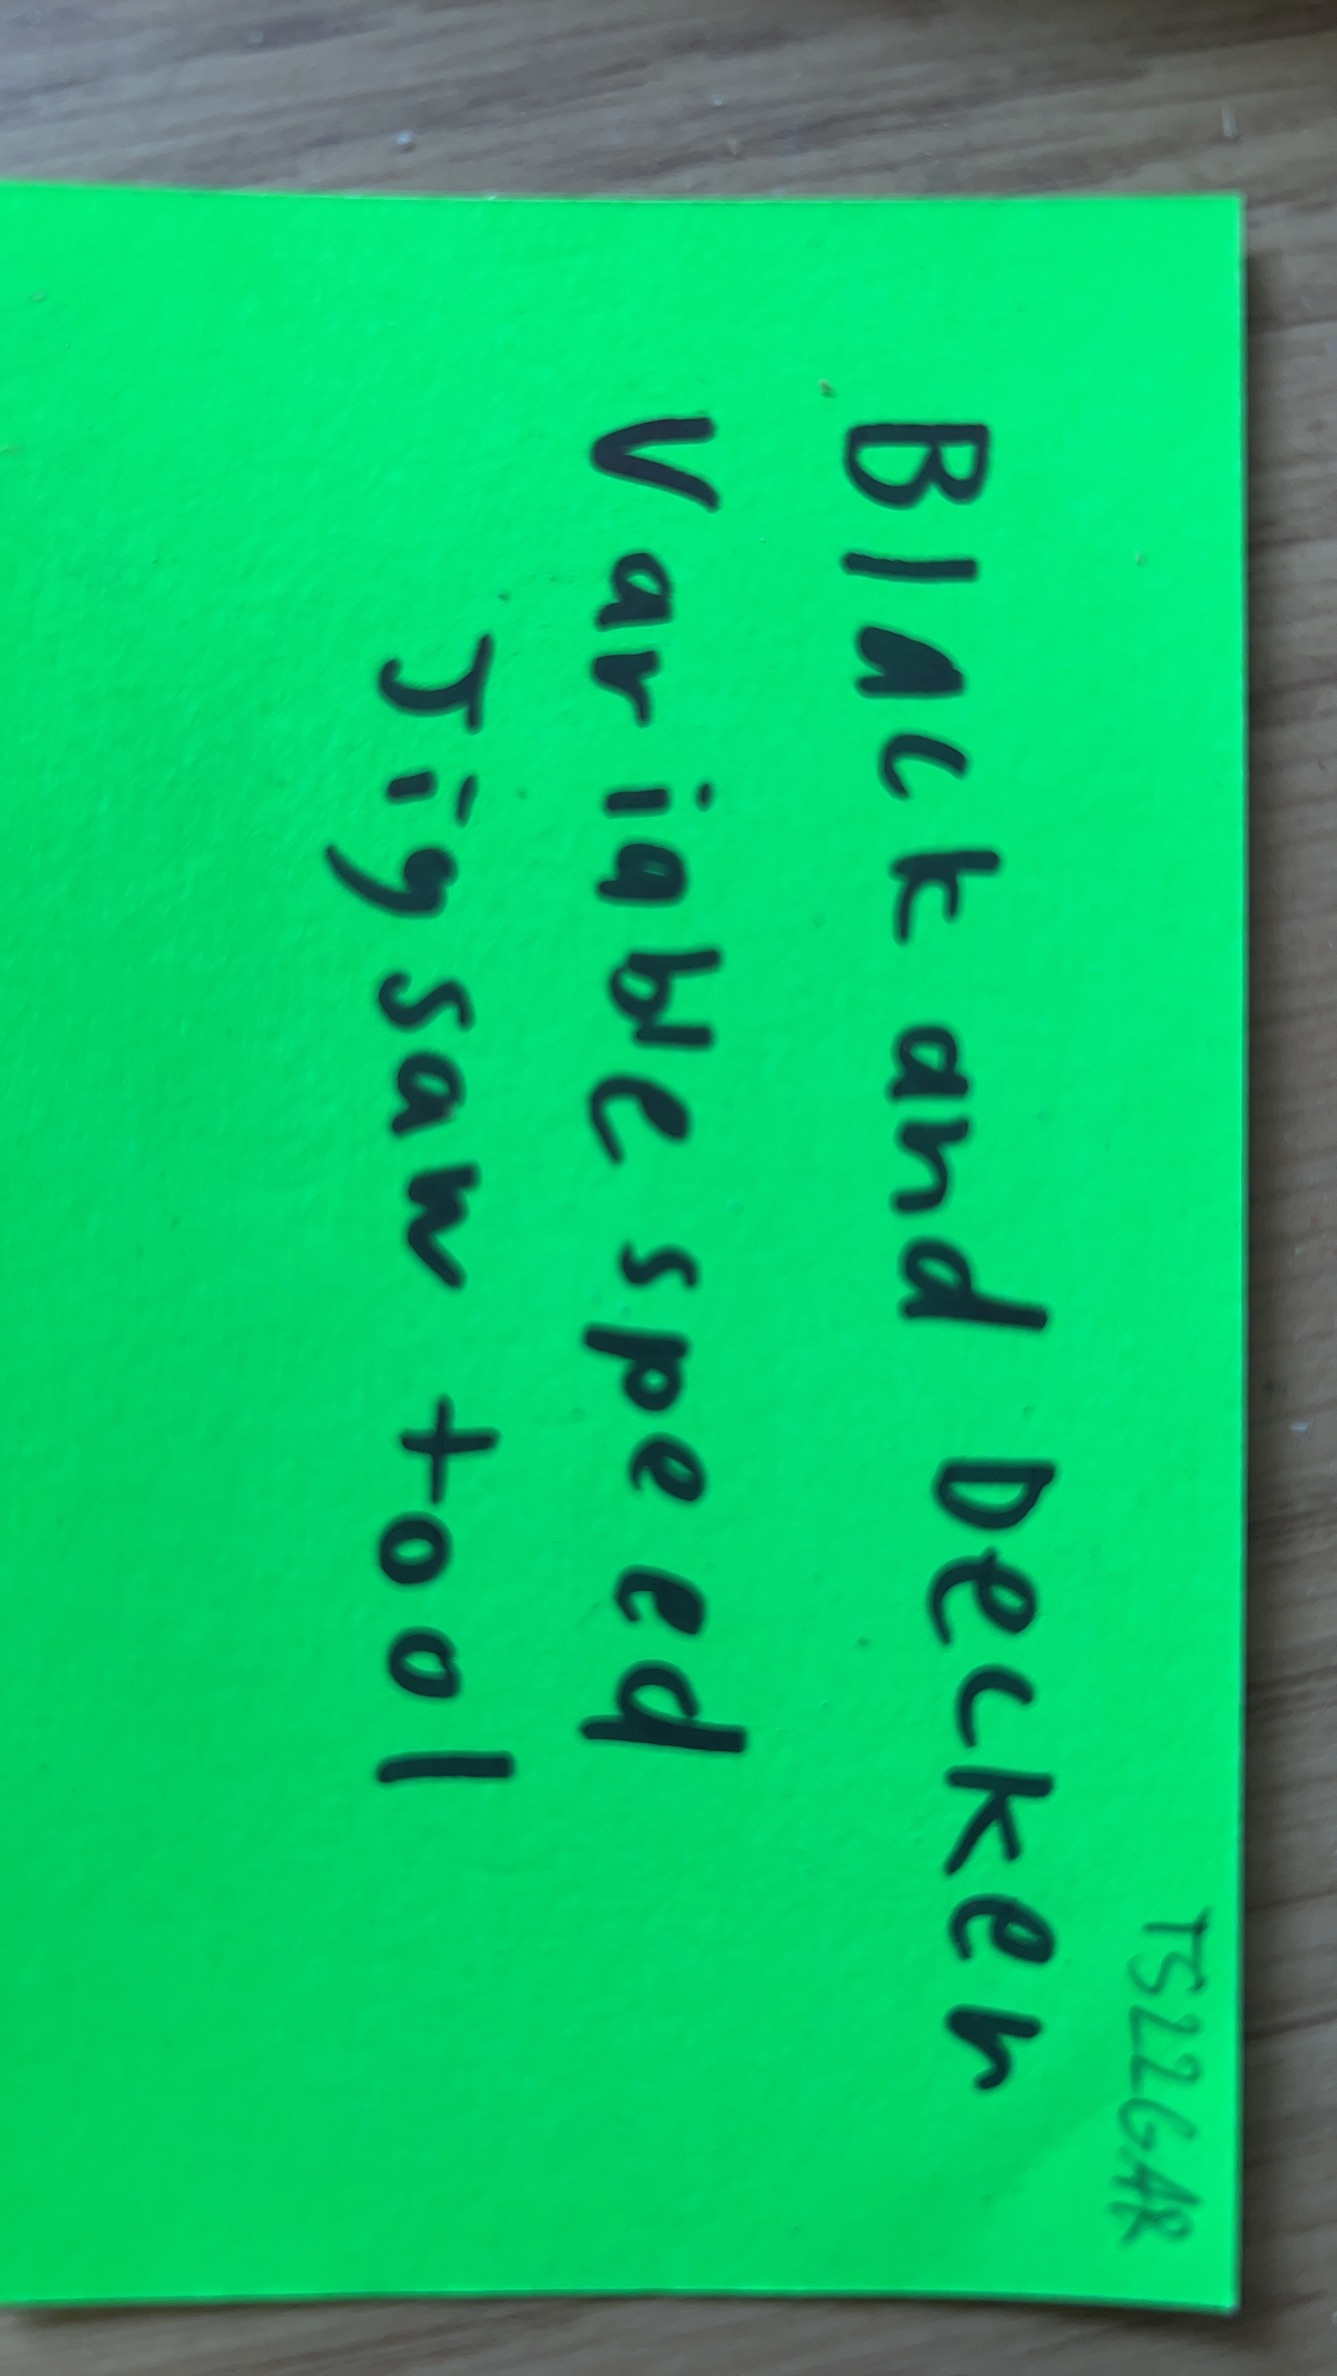 TS22GAR
Black and Decker
Variable speed
Jigsaw tool